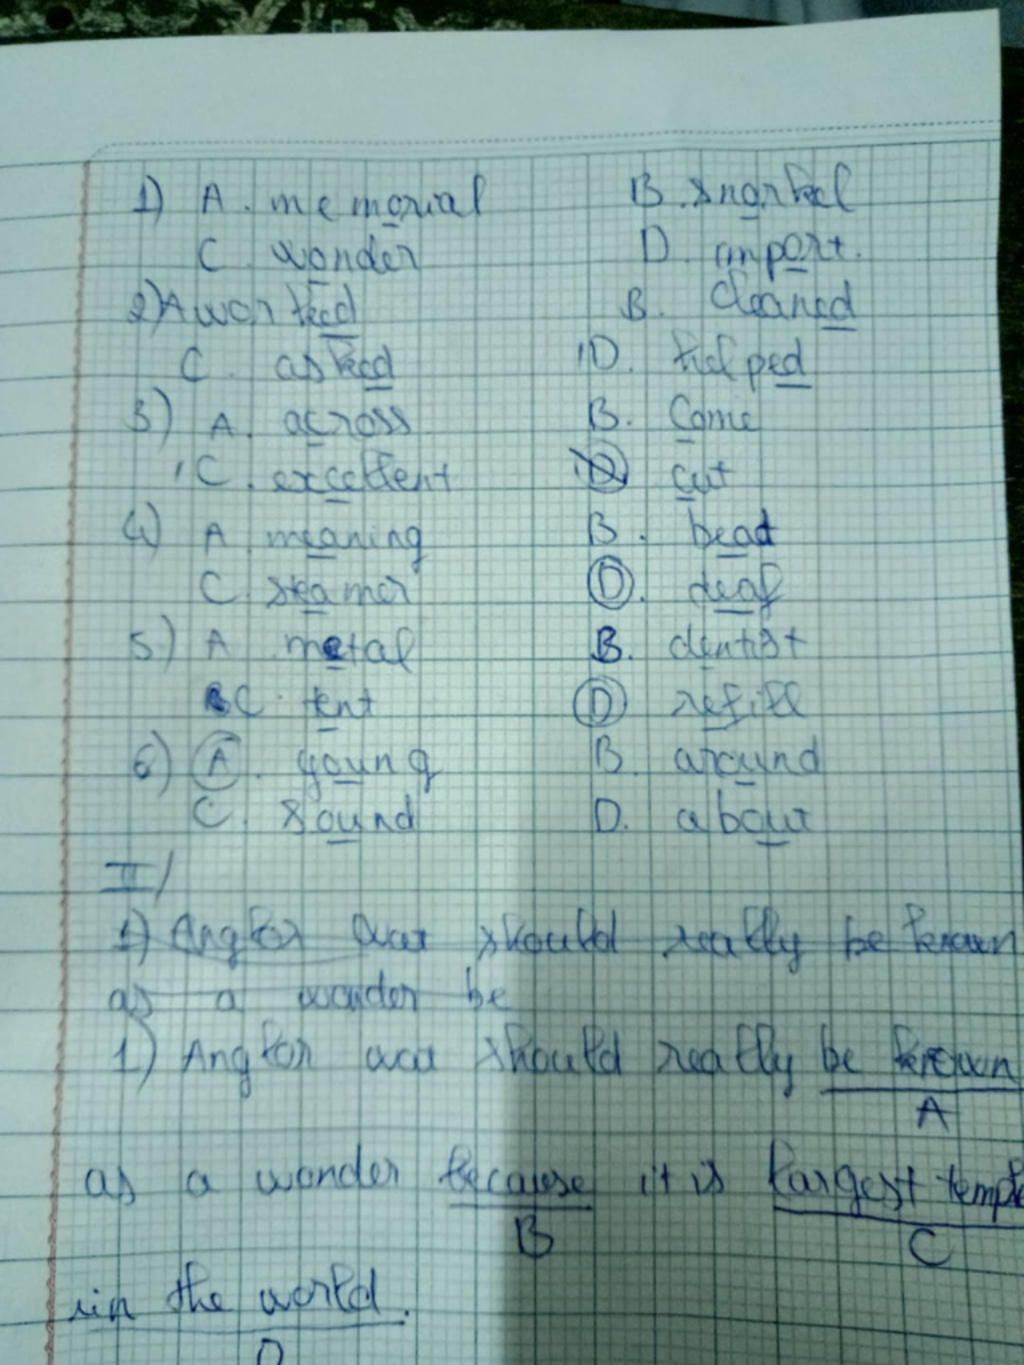 1) A. memorial B. snorkel
C. wonder D. import.
2) A worked B. cleaned
C. asked D. helped
3) A. across B. Come
C. excellent D cut
4) A meaning B. bead
C steamer D. deaf
5) A metal B. dentist
C. tent D refill
6) A. young B. around
C. sound D. about
II/
1) Angkor wat should really be known
as a wonder be
1) Angkor wat should really be known
A
as a wonder because it is largest temple
B C
in the world.
D